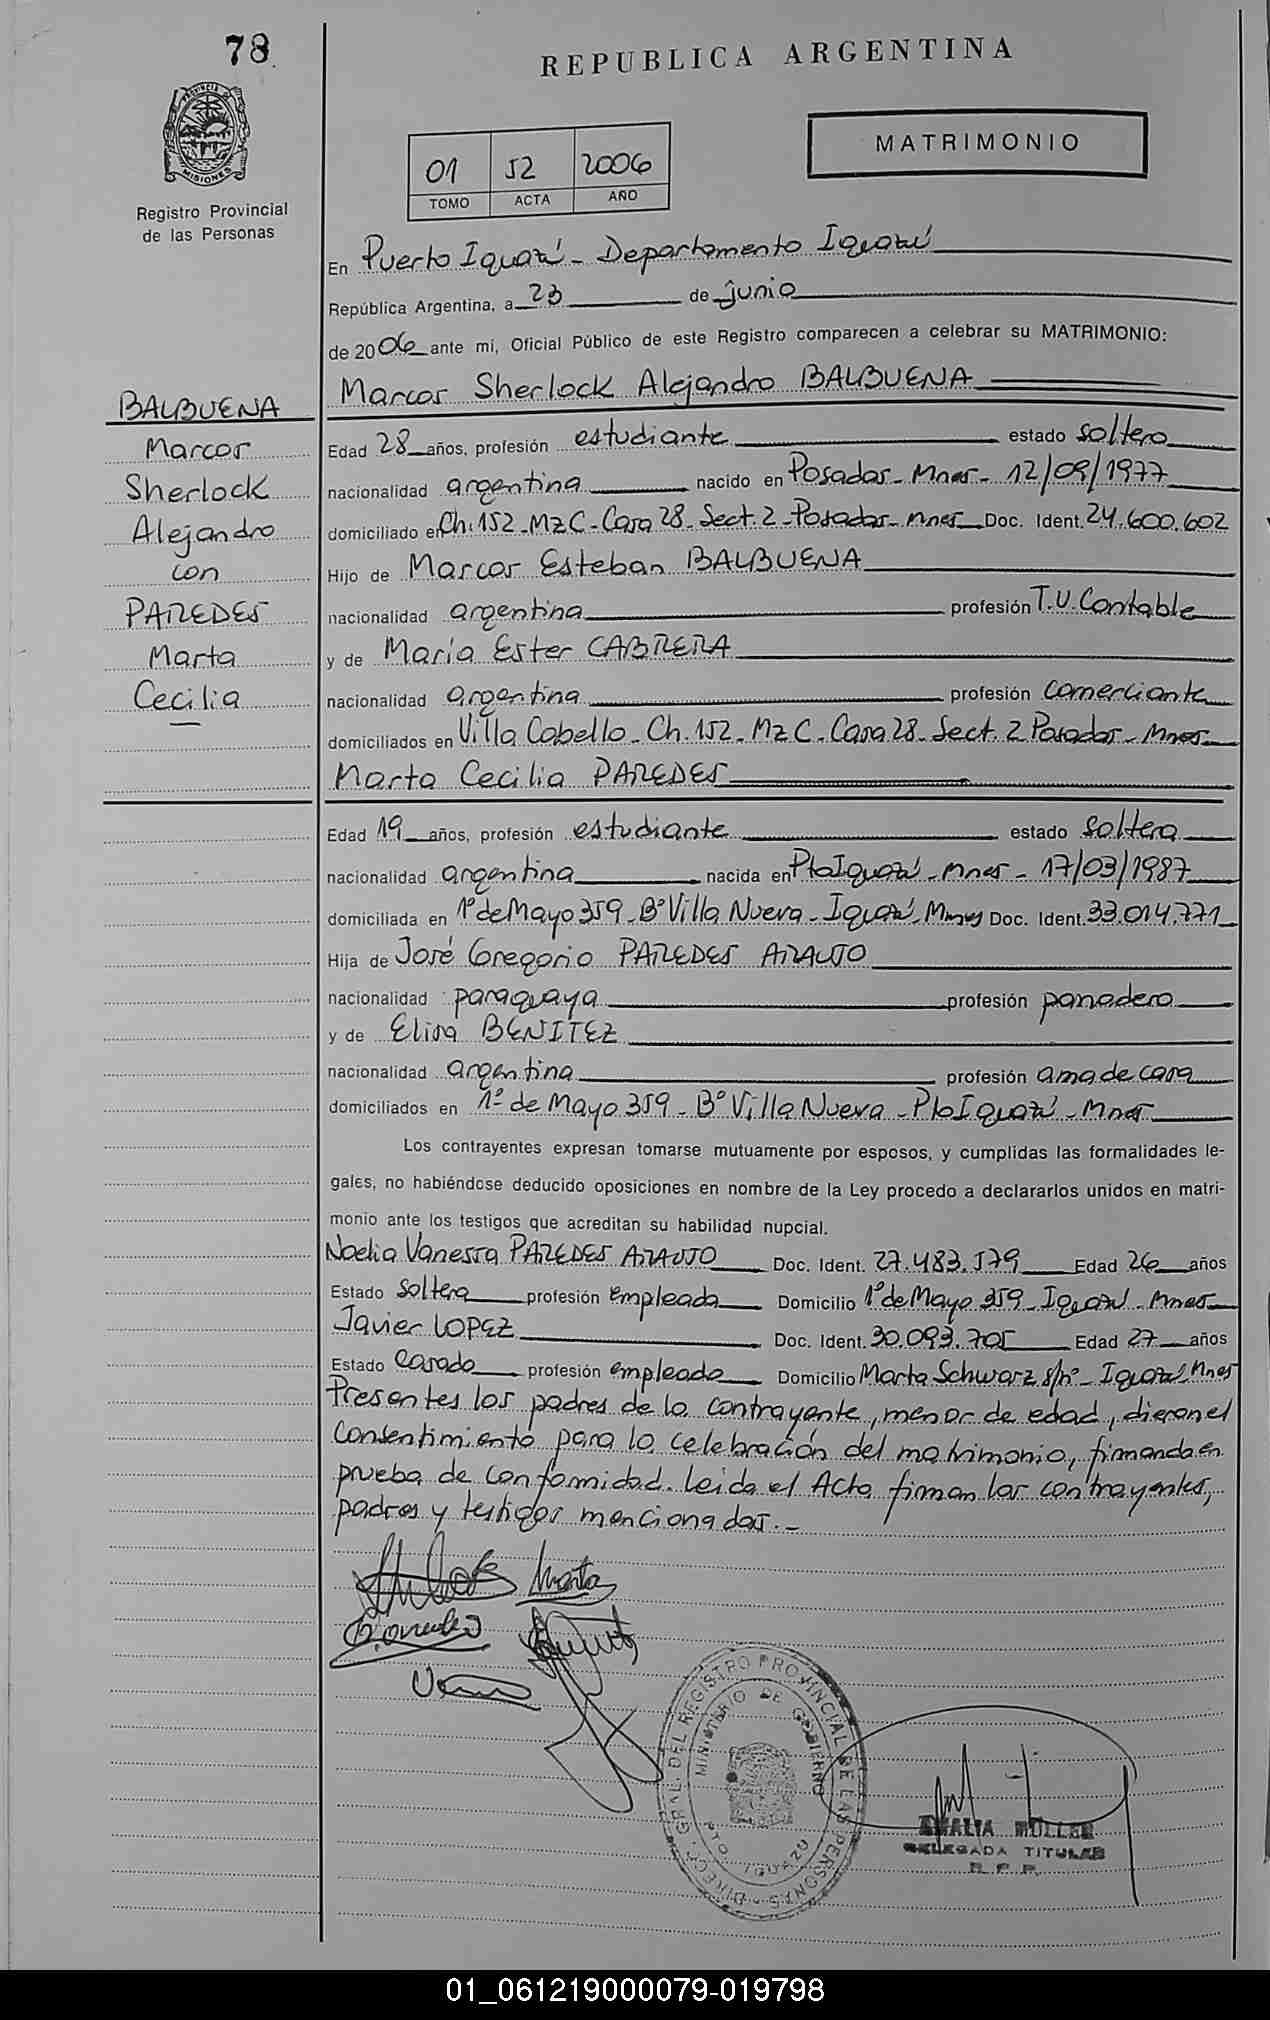 78
REPUBLICA ARGENTINA
PROVINCIA D
MISIONES
Registro Provincial
de las Personas
01 52 2006
TOMO ACTA AÑO
MATRIMONIO
En Puerto Iguazú - Departamento Iguazú
República Argentina, a 23 de junio
de 2006 ante mí, Oficial Público de este Registro comparecen a celebrar su MATRIMONIO:
Marcos Sherlock Alejandro BALBUENA
BALBUENA
Marcos
Sherlock
Alejandro
con
PAREDES
Marta
Cecilia
Edad 28 años, profesión estudiante estado soltero
nacionalidad argentina nacido en Posadas - Mnes - 12/09/1977
domiciliado en Ch. 152 - Mz C - Casa 28 - Sect. 2 - Posadas - Mnes Doc. Ident. 24.600.602
Hijo de Marcos Esteban BALBUENA
nacionalidad argentina profesión T.U. Contable
y de María Ester CABRERA
nacionalidad argentina profesión comerciante
domiciliados en Villa Cabello - Ch. 152 - Mz C - Casa 28 - Sect. 2 Posadas - Mnes
Marta Cecilia PAREDES
Edad 19 años, profesión estudiante estado soltera
nacionalidad argentina nacida en Pto Iguazú - Mnes - 17/03/1987
domiciliada en 1º de Mayo 359 - Bº Villa Nueva - Iguazú - Mnes Doc. Ident. 33.014.771
Hija de José Gregorio PAREDES ARAUJO
nacionalidad paraguaya profesión panadero
y de Elisa BENITEZ
nacionalidad argentina profesión ama de casa
domiciliados en 1º de Mayo 359 - Bº Villa Nueva - Pto Iguazú - Mnes
Los contrayentes expresan tomarse mutuamente por esposos, y cumplidas las formalidades le-
gales, no habiéndose deducido oposiciones en nombre de la Ley procedo a declararlos unidos en matri-
monio ante los testigos que acreditan su habilidad nupcial.
Noelia Vanessa PAREDES ARAUJO Doc. Ident. 27.483.579 Edad 26 años
Estado soltera profesión empleada Domicilio 1º de Mayo 359 - Iguazú - Mnes
Javier LOPEZ Doc. Ident. 30.093.705 Edad 27 años
Estado casado profesión empleado Domicilio Marta Schwarz s/nº - Iguazú Mnes
Presentes los padres de la contrayente, menor de edad, dieron el
consentimiento para la celebración del matrimonio, firmando en
prueba de conformidad. Leida el Acta firman los contrayentes,
padres y testigos mencionados. -
Marta
DIRECC. GRAL. DEL REGISTRO PROVINCIAL DE LAS PERSONAS
MINISTERIO DE GOBIERNO
PTO. IGUAZU
AMALIA MULLER
DELEGADA TITULAR
R. P. P.
01_061219000079-019798